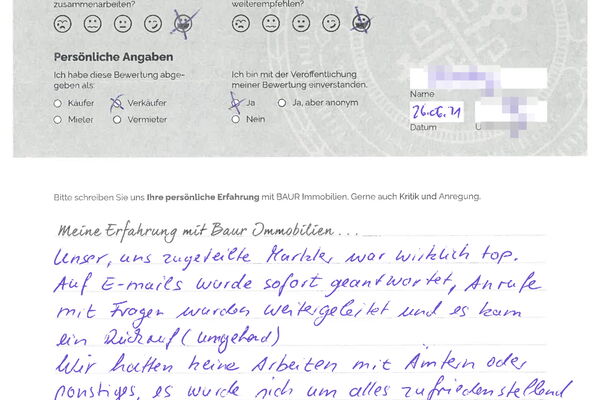 zusammenarbeiten?
weiterempfehlen?
Persönliche Angaben
Ich habe diese Bewertung abge-
geben als:
Käufer
Verkäufer
Mieter
Vermieter
Ich bin mit der Veröffentlichung
meiner Bewertung einverstanden.
Ja
Ja, aber anonym
Nein
Name
26.06.21
Datum
U
Bitte schreiben Sie uns Ihre persönliche Erfahrung mit BAUR Immobilien. Gerne auch Kritik und Anregung.
Meine Erfahrung mit Baur Immobilien . . .
Unser, uns zugeteilte Markler war wirklich top.
Auf E-mails wurde sofort geantwortet, Anrufe
mit Fragen wurden weitergeleitet und es kam
ein Rückruf (umgehend)
Wir hatten keine Arbeiten mit Ämtern oder
sonstiges, es wurde sich um alles zufriedenstellend